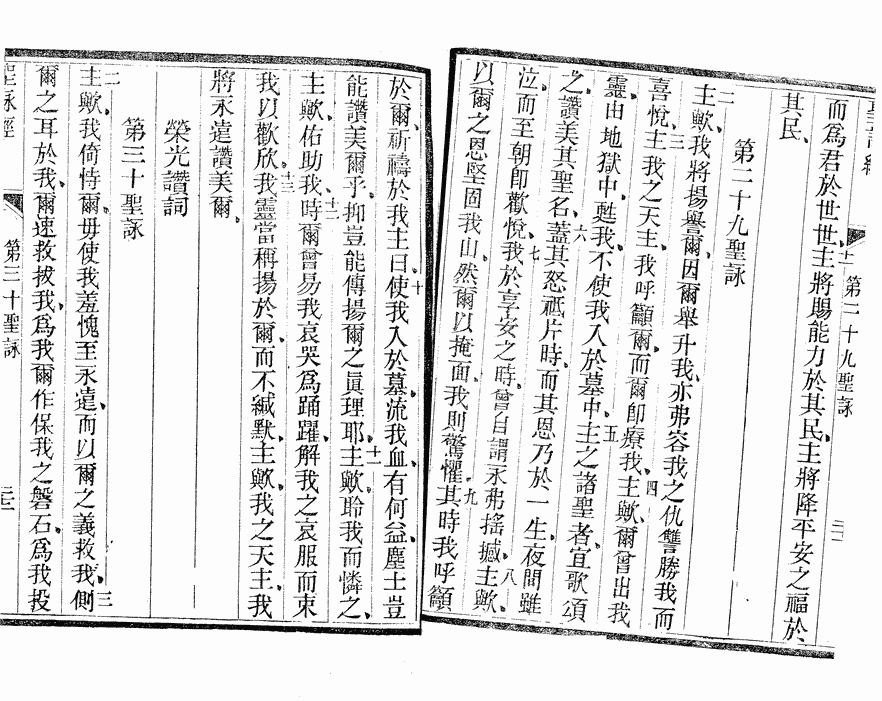 聖詠經
第二十九聖詠
而爲君於世世、主將賜能力於其民、主將降平安之福於
其民、
第二十九聖詠
二主歟、我將揚譽爾、因爾舉升我、亦弗容我之仇讐勝我而
喜悅、三主我之天主、我呼籲爾、而爾卽療我、四主歟、爾曾出我
靈由地獄中、甦我、不使我入於墓中、五主之諸聖者宜歌頌
之、讚美其聖名、六蓋其怒祗片時、而其恩乃於一生、夜間雖
泣、而至朝卽歡悅、七我於享安之時、曾自謂永弗搖撼、八主歟、
以爾之恩堅固我山、然爾以掩面、我則驚懼、九其時我呼籲
於爾、祈禱於我主曰、十使我入於墓、流我血、有何益、塵土豈
能讚美爾乎、抑豈能傳揚爾之眞理耶、十一主歟、聆我而憐之、
主歟、佑助我、十二時爾曾易我哀哭爲踊躍、解我之哀服而束
我以歡欣、十三我靈當稱揚於爾、而不緘默、主歟、我之天主、我
將永遠讚美爾、
榮光讚詞
第三十聖詠
二主歟、我倚恃爾、毋使我羞愧至永遠、而以爾之義救我、三側
爾之耳於我、爾速救拔我、爲我爾作保我之磐石、爲我投
聖詠經
第三十聖詠